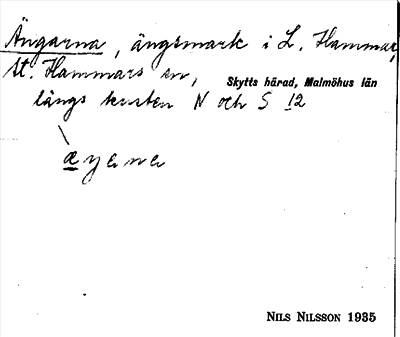 Ängarna, ängsmark i L. Hammar,
St. Hammars sn, Skytts härad, Malmöhus län
längs kusten N och S 12
NILS NILSSON 1935